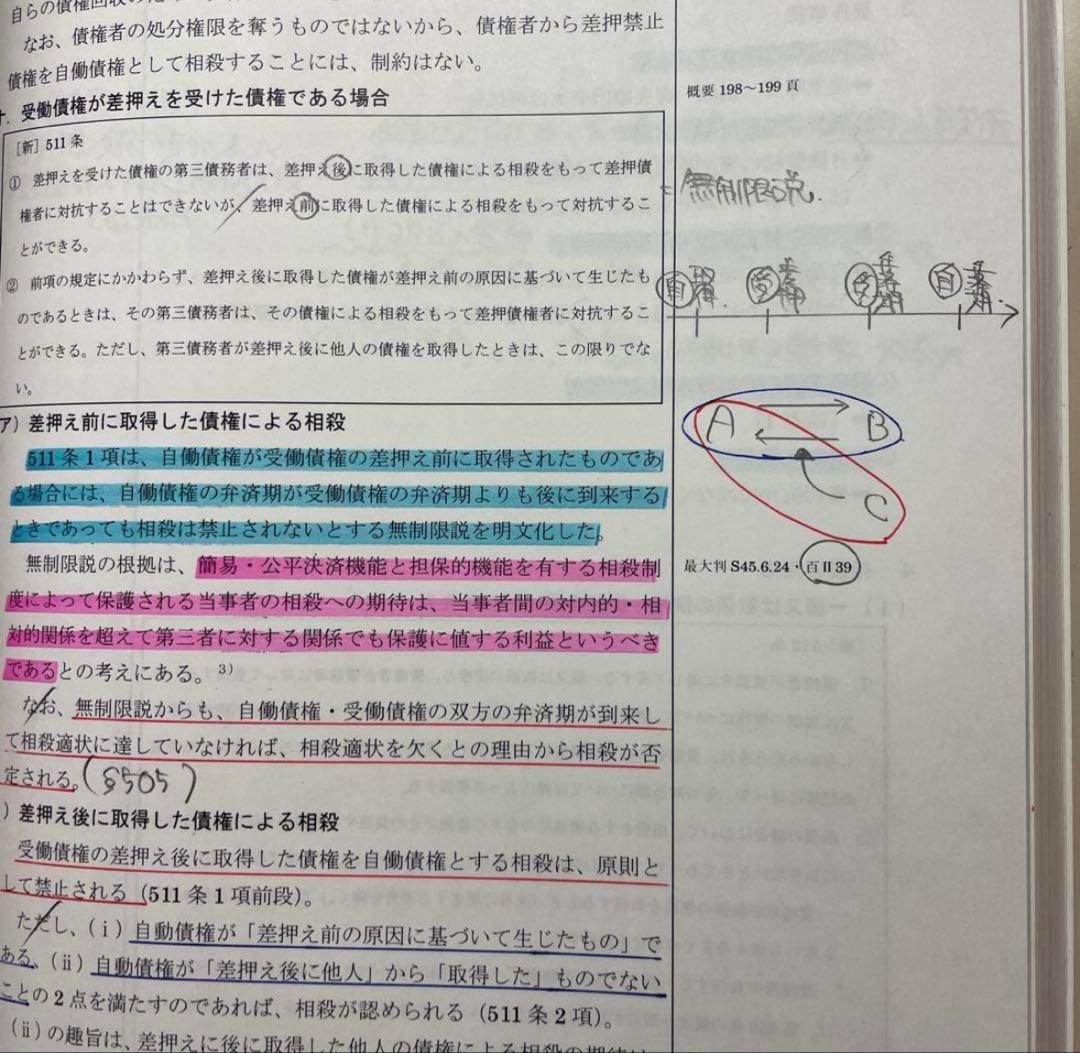 自らの債権回収の
なお、債権者の処分権限を奪うものではないから、債権者から差押禁止
債権を自働債権として相殺することには、制約はない。
受働債権が差押えを受けた債権である場合
[新] 511条
① 差押えを受けた債権の第三債務者は、差押え後に取得した債権による相殺をもって差押債
権者に対抗することはできないが、差押え前に取得した債権による相殺をもって対抗するこ
とができる。
② 前項の規定にかかわらず、差押え後に取得した債権が差押え前の原因に基づいて生じたも
のであるときは、その第三債務者は、その債権による相殺をもって差押債権者に対抗するこ
とができる。ただし、第三債務者が差押え後に他人の債権を取得したときは、この限りでな
い。
ア) 差押え前に取得した債権による相殺
511条1項は、自働債権が受働債権の差押え前に取得されたものであ
る場合には、自働債権の弁済期が受働債権の弁済期よりも後に到来する
ときであっても相殺は禁止されないとする無制限説を明文化した。
無制限説の根拠は、簡易・公平決済機能と担保的機能を有する相殺制
度によって保護される当事者の相殺への期待は、当事者間の対内的・相
対的関係を超えて第三者に対する関係でも保護に値する利益というべき
であるとの考えにある。3)
なお、無制限説からも、自働債権・受働債権の双方の弁済期が到来し
て相殺適状に達していなければ、相殺適状を欠くとの理由から相殺が否
定される。(§505)
) 差押え後に取得した債権による相殺
受働債権の差押え後に取得した債権を自働債権とする相殺は、原則と
して禁止される (511条1項前段)。
ただし、(ⅰ) 自動債権が「差押え前の原因に基づいて生じたもの」で
ある、(ⅱ) 自動債権が「差押え後に他人」から「取得した」ものでない
ことの2点を満たすのであれば、相殺が認められる (511条2項)。
(ⅱ) の趣旨は、差押えに後に取得した他人の債権による相殺の期待は
概要 198~199頁
=無制限説.
自 取得 受 差押 受 弁済期 自 弁済期
A B
C
最大判 S45.6.24・百Ⅱ39